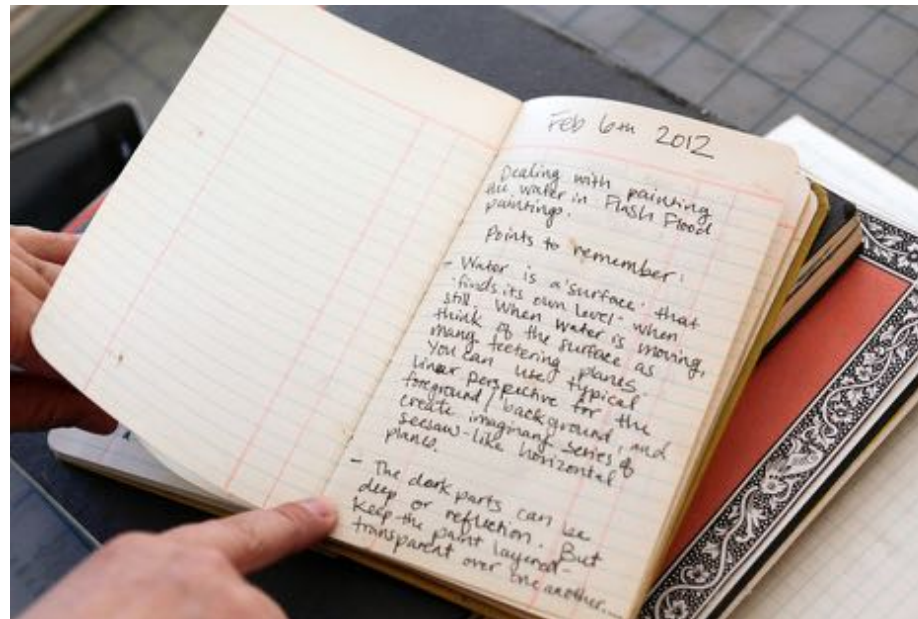 Feb 6th 2012
Dealing with painting
the water in Flash Flood
paintings.
Points to remember:
- Water is a "surface" that
"finds its own level" when
still. When water is moving,
think of the surface as
many teetering planes.
You can use typical
linear perspective for the
foreground / background, and
create imaginary series of
seesaw-like horizontal
planes.
- The dark parts can be
deep or reflection. But
keep the paint layered -
transparent over one another...